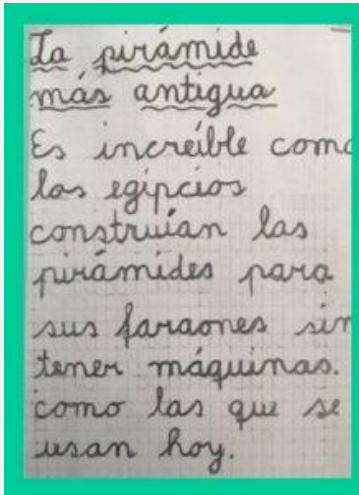 La pirámide
más antigua
Es increíble como
los egipcios
construían las
pirámides para
sus faraones sin
tener máquinas.
como las que se
usan hoy.